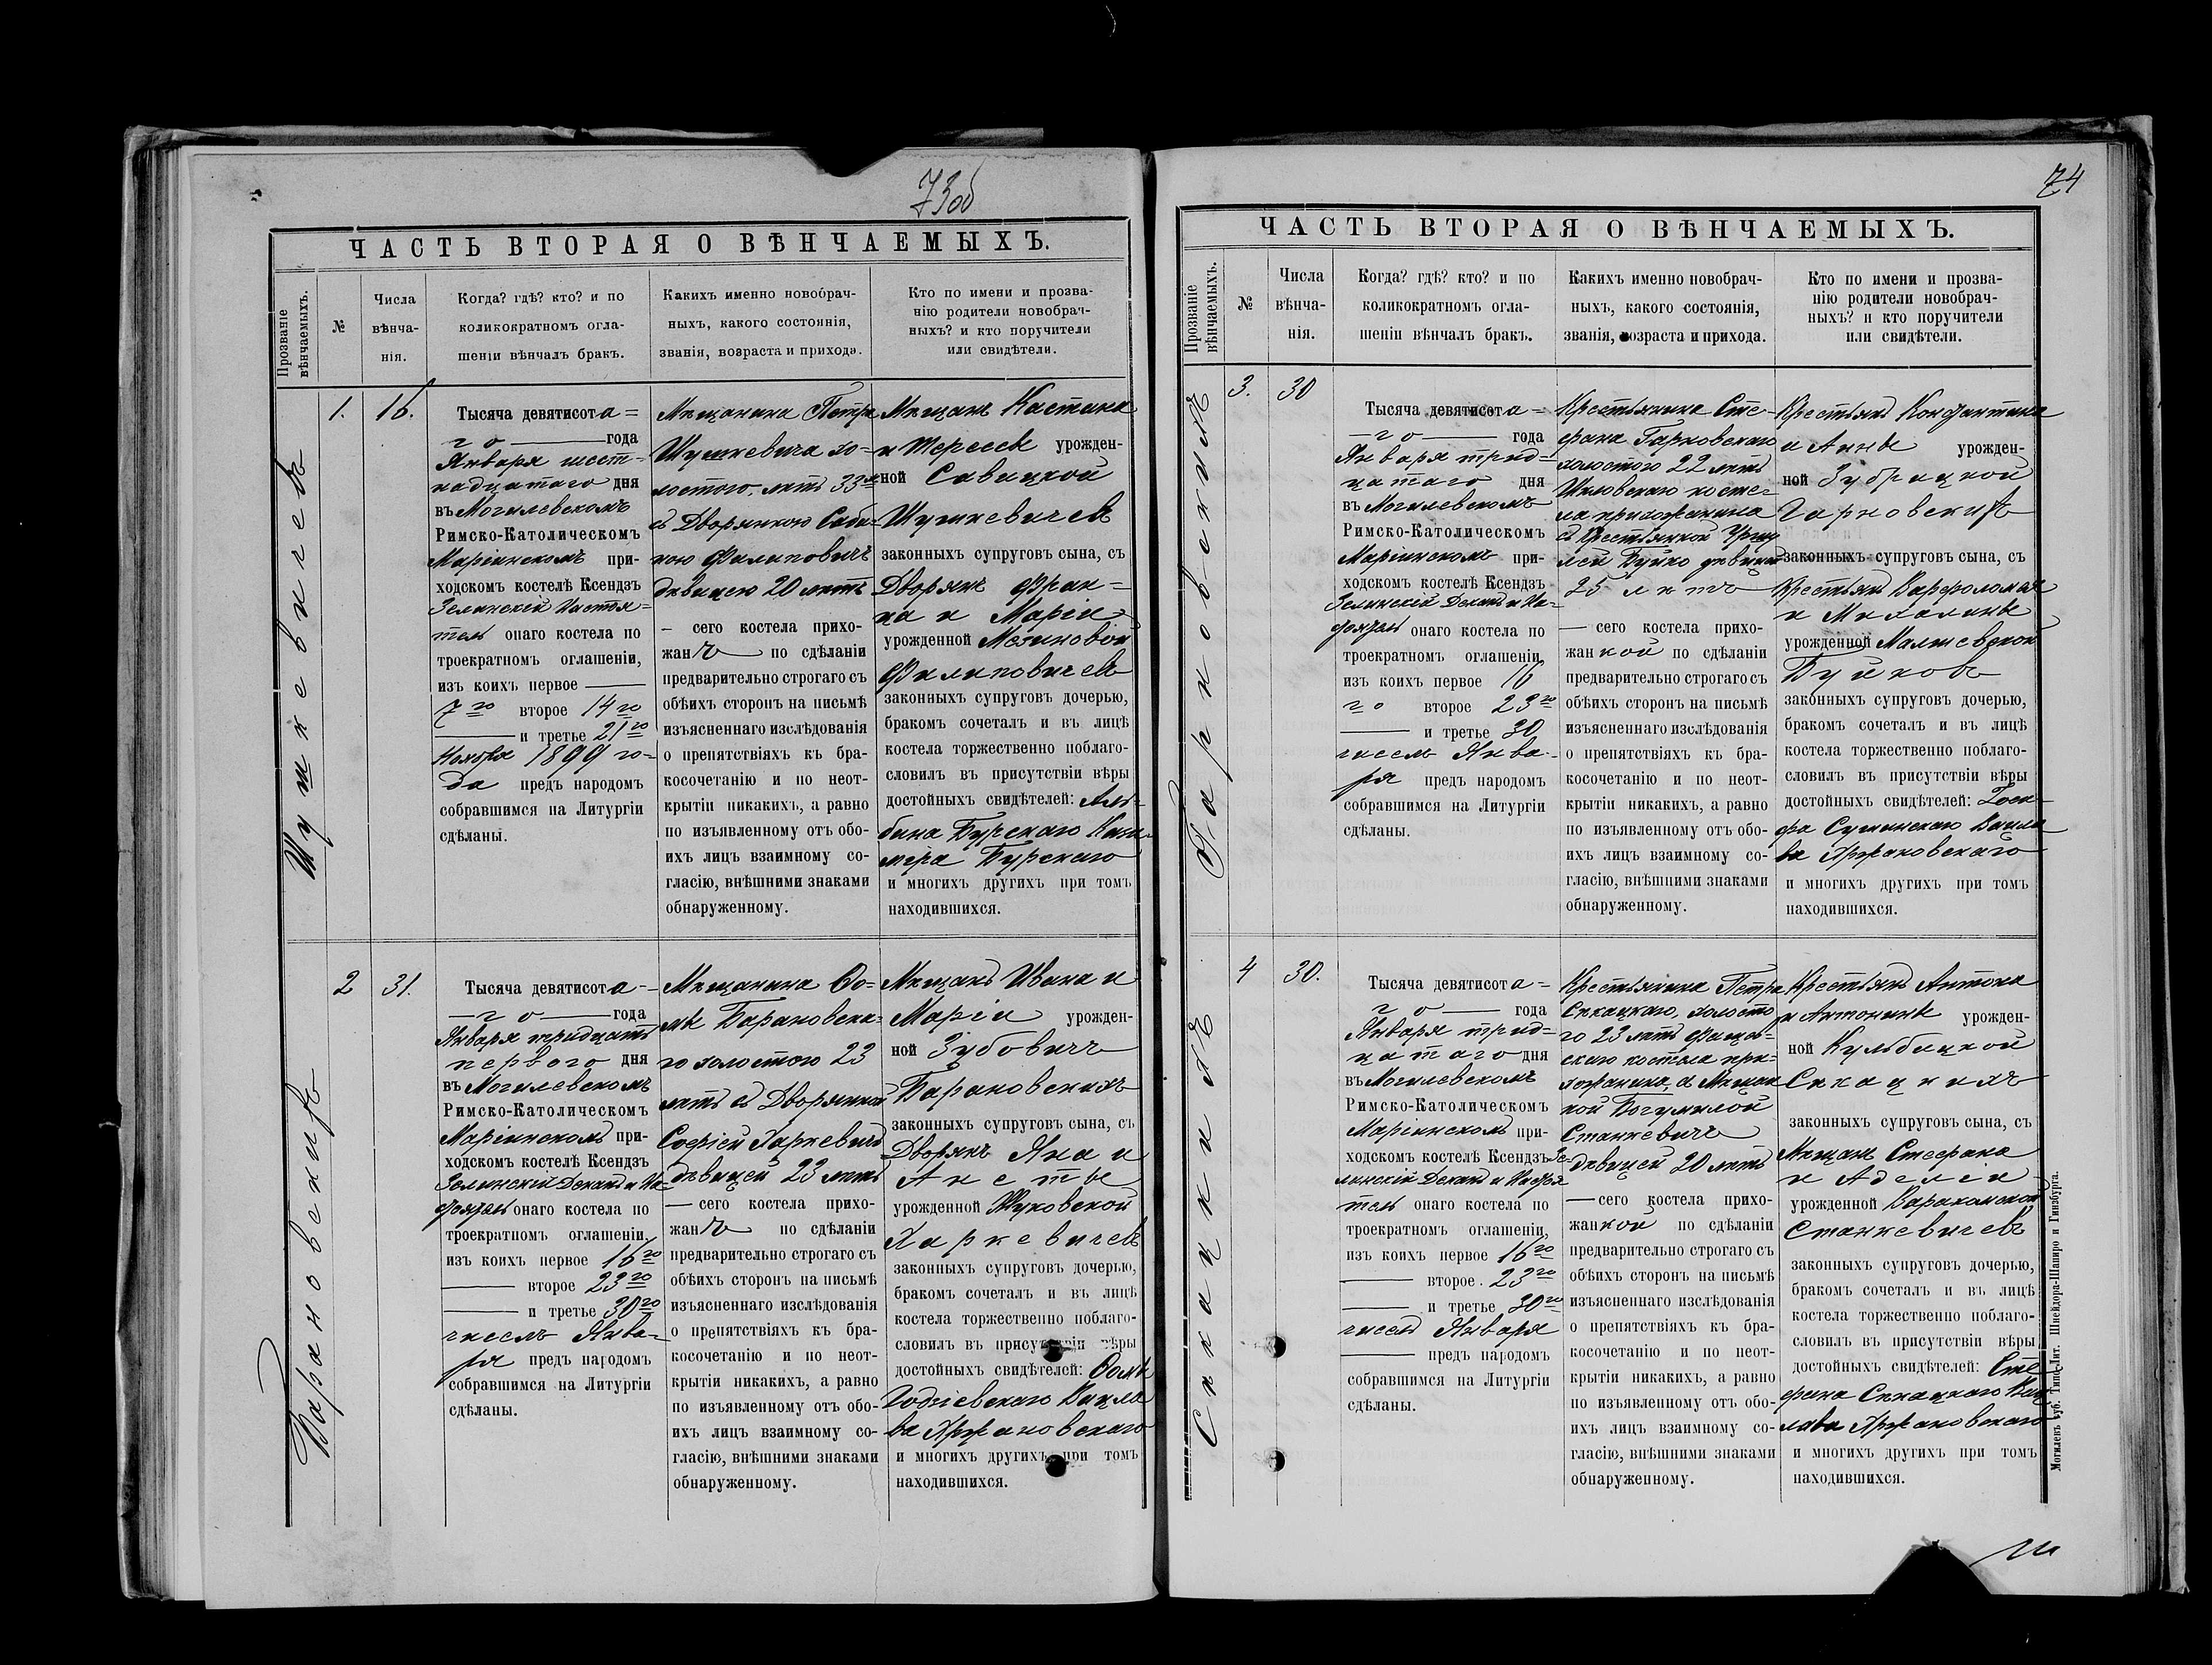 73об
ЧАСТЬ ВТОРАЯ О ВѢНЧАЕМЫХЪ.
Прозваніе вѣнчаемыхъ.
№
Числа
вѣнча-
нія.
Когда? гдѣ? кто? и по
коликократномъ огла-
шеніи вѣнчалъ бракъ.
Какихъ именно новобрач-
ныхъ, какого состоянія,
званія, возраста и прихода.
Кто по имени и прозва-
нію родители новобрач-
ныхъ? и кто поручители
или свидѣтели.
Шушкевичевъ
1.
16.
Тысяча девятисота=
го года
Января шест-
надцатаго дня
въ Могилевскомъ
Римско-Католическомъ
Маріинскомъ при-
ходскомъ костелѣ Ксендзъ
Зелинскій Настоя=
тель онаго костела по
троекратномъ оглашеніи,
изъ коихъ первое
7го второе 14го
и третье 21го
Ноября 1899 го-
да предъ народомъ
собравшимся на Литургіи
сдѣланы.
Мѣщанина Петра
Шушкевича хо=
лостого, лѣтъ 33хъ
съ Дворянкою Саби-
ною Филиповичъ
дѣвицею 20 лѣтъ
сего костела прихо-
жанъ по сдѣланіи
предварительно строгаго съ
обѣихъ сторонъ на письмѣ
изъясненнаго изслѣдованія
о препятствіяхъ къ бра-
косочетанію и по неот-
крытіи никакихъ, а равно
по изъявленному отъ обо-
ихъ лицъ взаимному со-
гласію, внѣшними знаками
обнаруженному.
Мѣщанъ Кастана
и Терессы урожден-
ной Савицкой
Шушкевичевъ
законныхъ супруговъ сына, съ
Дворянъ Фран=
ца и Маріи
урожденной
Филиповичевъ
законныхъ супруговъ дочерью,
бракомъ сочеталъ и въ лицѣ
костела торжественно поблаго-
словилъ въ присутствіи вѣры
достойныхъ свидѣтелей: Аль-
бина Бурскаго Кази-
міра Бурскаго
и многихъ другихъ при томъ
находившихся.
Барановскихъ
2
31.
Тысяча девятисота-
го года
Января тридцать
перваго дня
въ Могилевскомъ
Римско-Католическомъ
Маріинскомъ при-
ходскомъ костелѣ Ксендзъ
Зелинскій Деканъ и На-
стоятель онаго костела по
троекратномъ оглашеніи,
изъ коихъ первое 16го
второе 23го
и третье 30го
чиселъ Янва-
ря предъ народомъ
собравшимся на Литургіи
сдѣланы.
Мѣщанина Ѳо=
мы Барановска=
го холостого 23
лѣтъ съ Дворянкой
Софіей Харкевичъ
дѣвицей 23 лѣтъ
сего костела прихо-
жанъ по сдѣланіи
предварительно строгаго съ
обѣихъ сторонъ на письмѣ
изъясненнаго изслѣдованія
о препятствіяхъ къ бра-
косочетанію и по неот-
крытіи никакихъ, а равно
по изъявленному отъ обо-
ихъ лицъ взаимному со-
гласію, внѣшними знаками
обнаруженному.
Мѣщанъ Ивана и
Маріи урожден-
ной Зубовичъ
Барановскихъ
законныхъ супруговъ сына, съ
Дворянъ Яна и
Анеты
урожденной Жуковской
Харкевичевъ
законныхъ супруговъ дочерью,
бракомъ сочеталъ и въ лицѣ
костела торжественно поблаго-
словилъ въ присутствіи вѣры
достойныхъ свидѣтелей: Ѳомы
Годзіевскаго Вацла
ва Хржановскаго
и многихъ другихъ при томъ
находившихся.
74
ЧАСТЬ ВТОРАЯ О ВѢНЧАЕМЫХЪ.
Прозваніе вѣнчаемыхъ.
№
Числа
вѣнча-
нія.
Когда? гдѣ? кто? и по
коликократномъ огла-
шеніи вѣнчалъ бракъ.
Какихъ именно новобрач-
ныхъ, какого состоянія,
званія, возраста и прихода.
Кто по имени и прозва-
нію родители новобрач-
ныхъ? и кто поручители
или свидѣтели.
Гарновскихъ
3.
30
Тысяча девятисота=
го года
Января трид=
цатаго дня
въ Могилевскомъ
Римско-Католическомъ
Маріинскомъ при-
ходскомъ костелѣ Ксендзъ
Зелинскій Деканъ и На-
стоятель онаго костела по
троекратномъ оглашеніи
изъ коихъ первое 16
го второе 23го
и третье 30
чиселъ Янва-
ря предъ народомъ
собравшимся на Литургіи
сдѣланы.
Крестьянина Сте-
фана Гарновскаго
холостого 22 лѣтъ
Шкловскаго косте=
ла прихожанина
съ Крестьянкой Уршу
лей Буйко дѣвицей
25 лѣтъ
сего костела прихо-
жанкой по сдѣланіи
предварительно строгаго съ
обѣихъ сторонъ на письмѣ
изъясненнаго изслѣдованія
о препятствіяхъ къ бра-
косочетанію и по неот-
крытіи никакихъ, а равно
по изъявленному отъ обо-
ихъ лицъ взаимному со-
гласію, внѣшними знаками
обнаруженному.
Крестьянъ Константина
и Анны урожден-
ной Зубрицкой
Гарновскихъ
законныхъ супруговъ сына, съ
Крестьянъ Варфоломея
и Михалины
урожденной Малишевской
Буйковъ
законныхъ супруговъ дочерью,
бракомъ сочеталъ и въ лицѣ
костела торжественно поблаго-
словилъ въ присутствіи вѣры
достойныхъ свидѣтелей: Іоси-
фа Сушинскаго Вацла
ва Хржановскаго
и многихъ другихъ при томъ
находившихся.
Спкацкихъ
4
30.
Тысяча девятисота=
го года
Января трид=
цатаго дня
въ Могилевскомъ
Римско-Католическомъ
Маріинскомъ при-
ходскомъ костелѣ Ксендзъ Зе-
линскій Деканъ и Настоя
тель онаго костела по
троекратномъ оглашеніи,
изъ коихъ первое 16го
второе. 23го
и третье 30го
чиселъ Января
предъ народомъ
собравшимся на Литургіи
сдѣланы.
Крестьянина Петра
холосто
го 23 лѣтъ Фащев-
скаго костела при=
хожанина, съ Мѣщан
кой Богумилой
Станкевичъ
дѣвицей 20 лѣтъ
сего костела прихо-
жанкой по сдѣланіи
предварительно строгаго съ
обѣихъ сторонъ на письмѣ
изъясненнаго изслѣдованія
о препятствіяхъ къ бра-
косочетанію и по неот-
крытіи никакихъ, а равно
по изъявленному отъ обо-
ихъ лицъ взаимному со-
гласію, внѣшними знаками
обнаруженному.
Крестьянъ Антона
и Антонины урожден-
ной Кульбицкой
законныхъ супруговъ сына, съ
Мѣщанъ Стефана
и Аделіи
урожденной
Станкевичевъ
законныхъ супруговъ дочерью,
бракомъ сочеталъ и въ лицѣ
костела торжественно поблаго-
словилъ въ присутствіи вѣры
достойныхъ свидѣтелей: Сте
фана Вац
лава Хржановскаго
и многихъ другихъ при томъ
находившихся.
Могилевъ губ. Типо-Лит. Шнейдора-Шапиро и Гинзбурга.